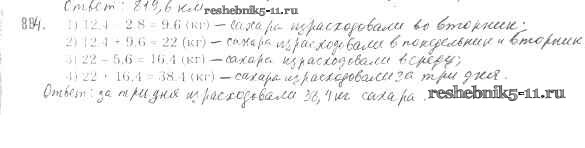 Ответ: 819,6 км
884. 1) 12,4 – 2,8 = 9,6 (кг) – сахара израсходовали во вторник;
2) 12,4 + 9,6 = 22 (кг) – сахара израсходовали в понедельник и вторник
3) 22 – 5,6 = 16,4 (кг) – сахара израсходовали в среду;
4) 22 + 16,4 = 38,4 (кг) – сахара израсходовали за три дня.
Ответ: за три дня израсходовали 38,4 кг сахара.
reshebnik5-11.ru
reshebnik5-11.ru